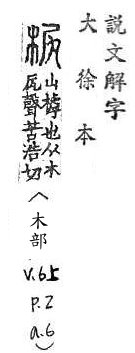 説文解字
大徐本
山樗也从木
尻聲苦浩切
(木部
v.6上
p.2
a.6)